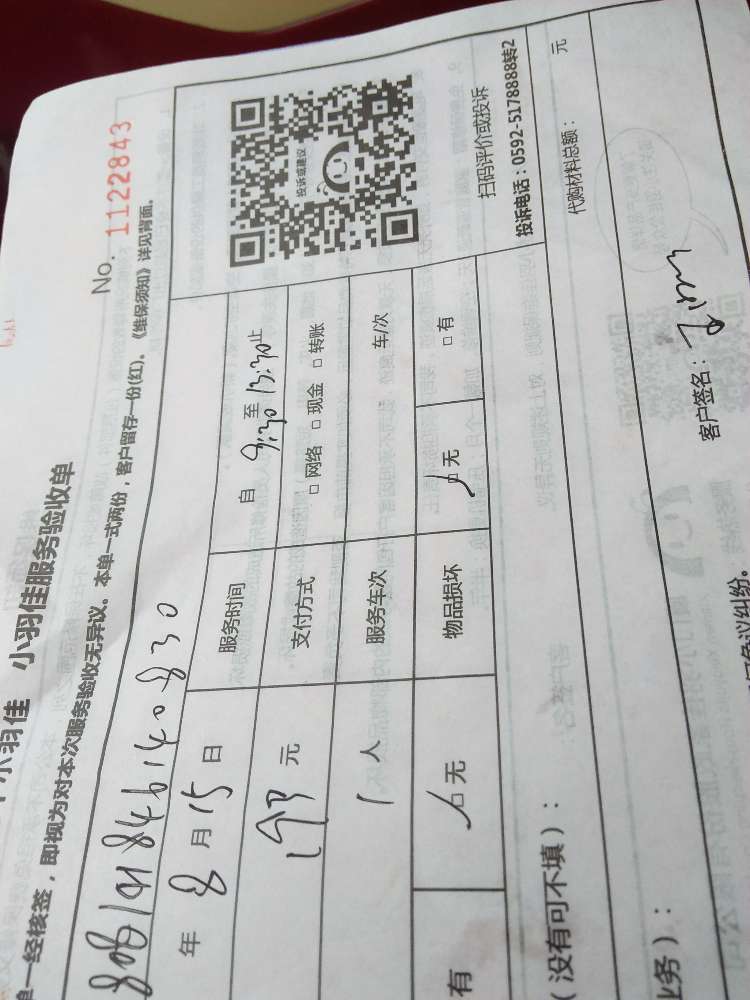 No. 1122843
小羽佳 小羽佳服务验收单
单一经核签，即视为对本次服务验收无异议。本单一式两份，客户留存一份(红)。《维保须知》详见背面。
年 8 月 15 日
服务时间 自 9:30 至 13:30 止
元 支付方式 □ 网络 □ 现金 □ 转账
1 人 服务车次 车/次
有 □ 无 物品损坏 □ 无 □ 有
投诉或建议
扫码评价或投诉
投诉电话：0592-5178888转2
（没有可不填）： 代购材料总额： 元
业务）： 客户签名：
争议纠纷。